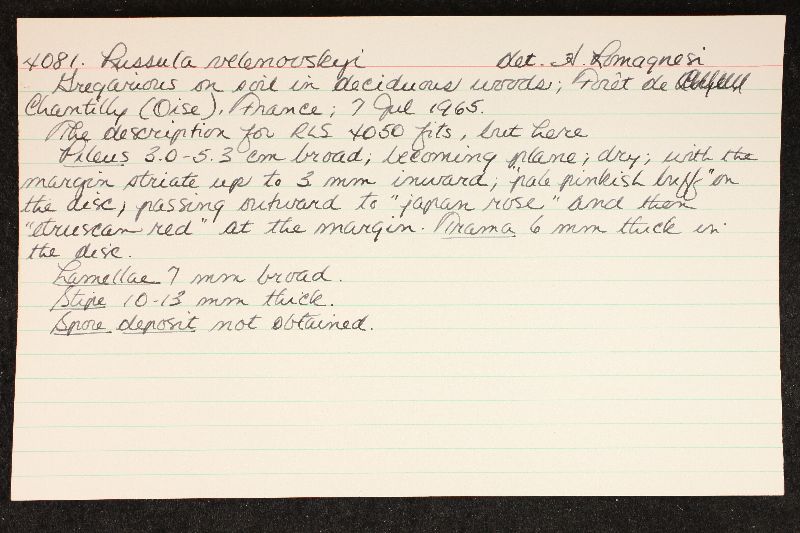 4081. Russula velenovskyi det. H. Romagnesi
Gregarious on soil in deciduous woods; Forêt de
Chantilly (Oise), France; 7 Jul 1965.
The description for RLS 4050 fits, but here
Pileus 3.0-5.3 cm broad; becoming plane; dry; with the
margin striate up to 3 mm inward; "pale pinkish buff" on
the disc, passing outward to "japan rose" and then
"etruscan red" at the margin. Trama 6 mm thick in
the disc.
Lamellae 7 mm broad.
Stipe 10-13 mm thick.
Spore deposit not obtained.